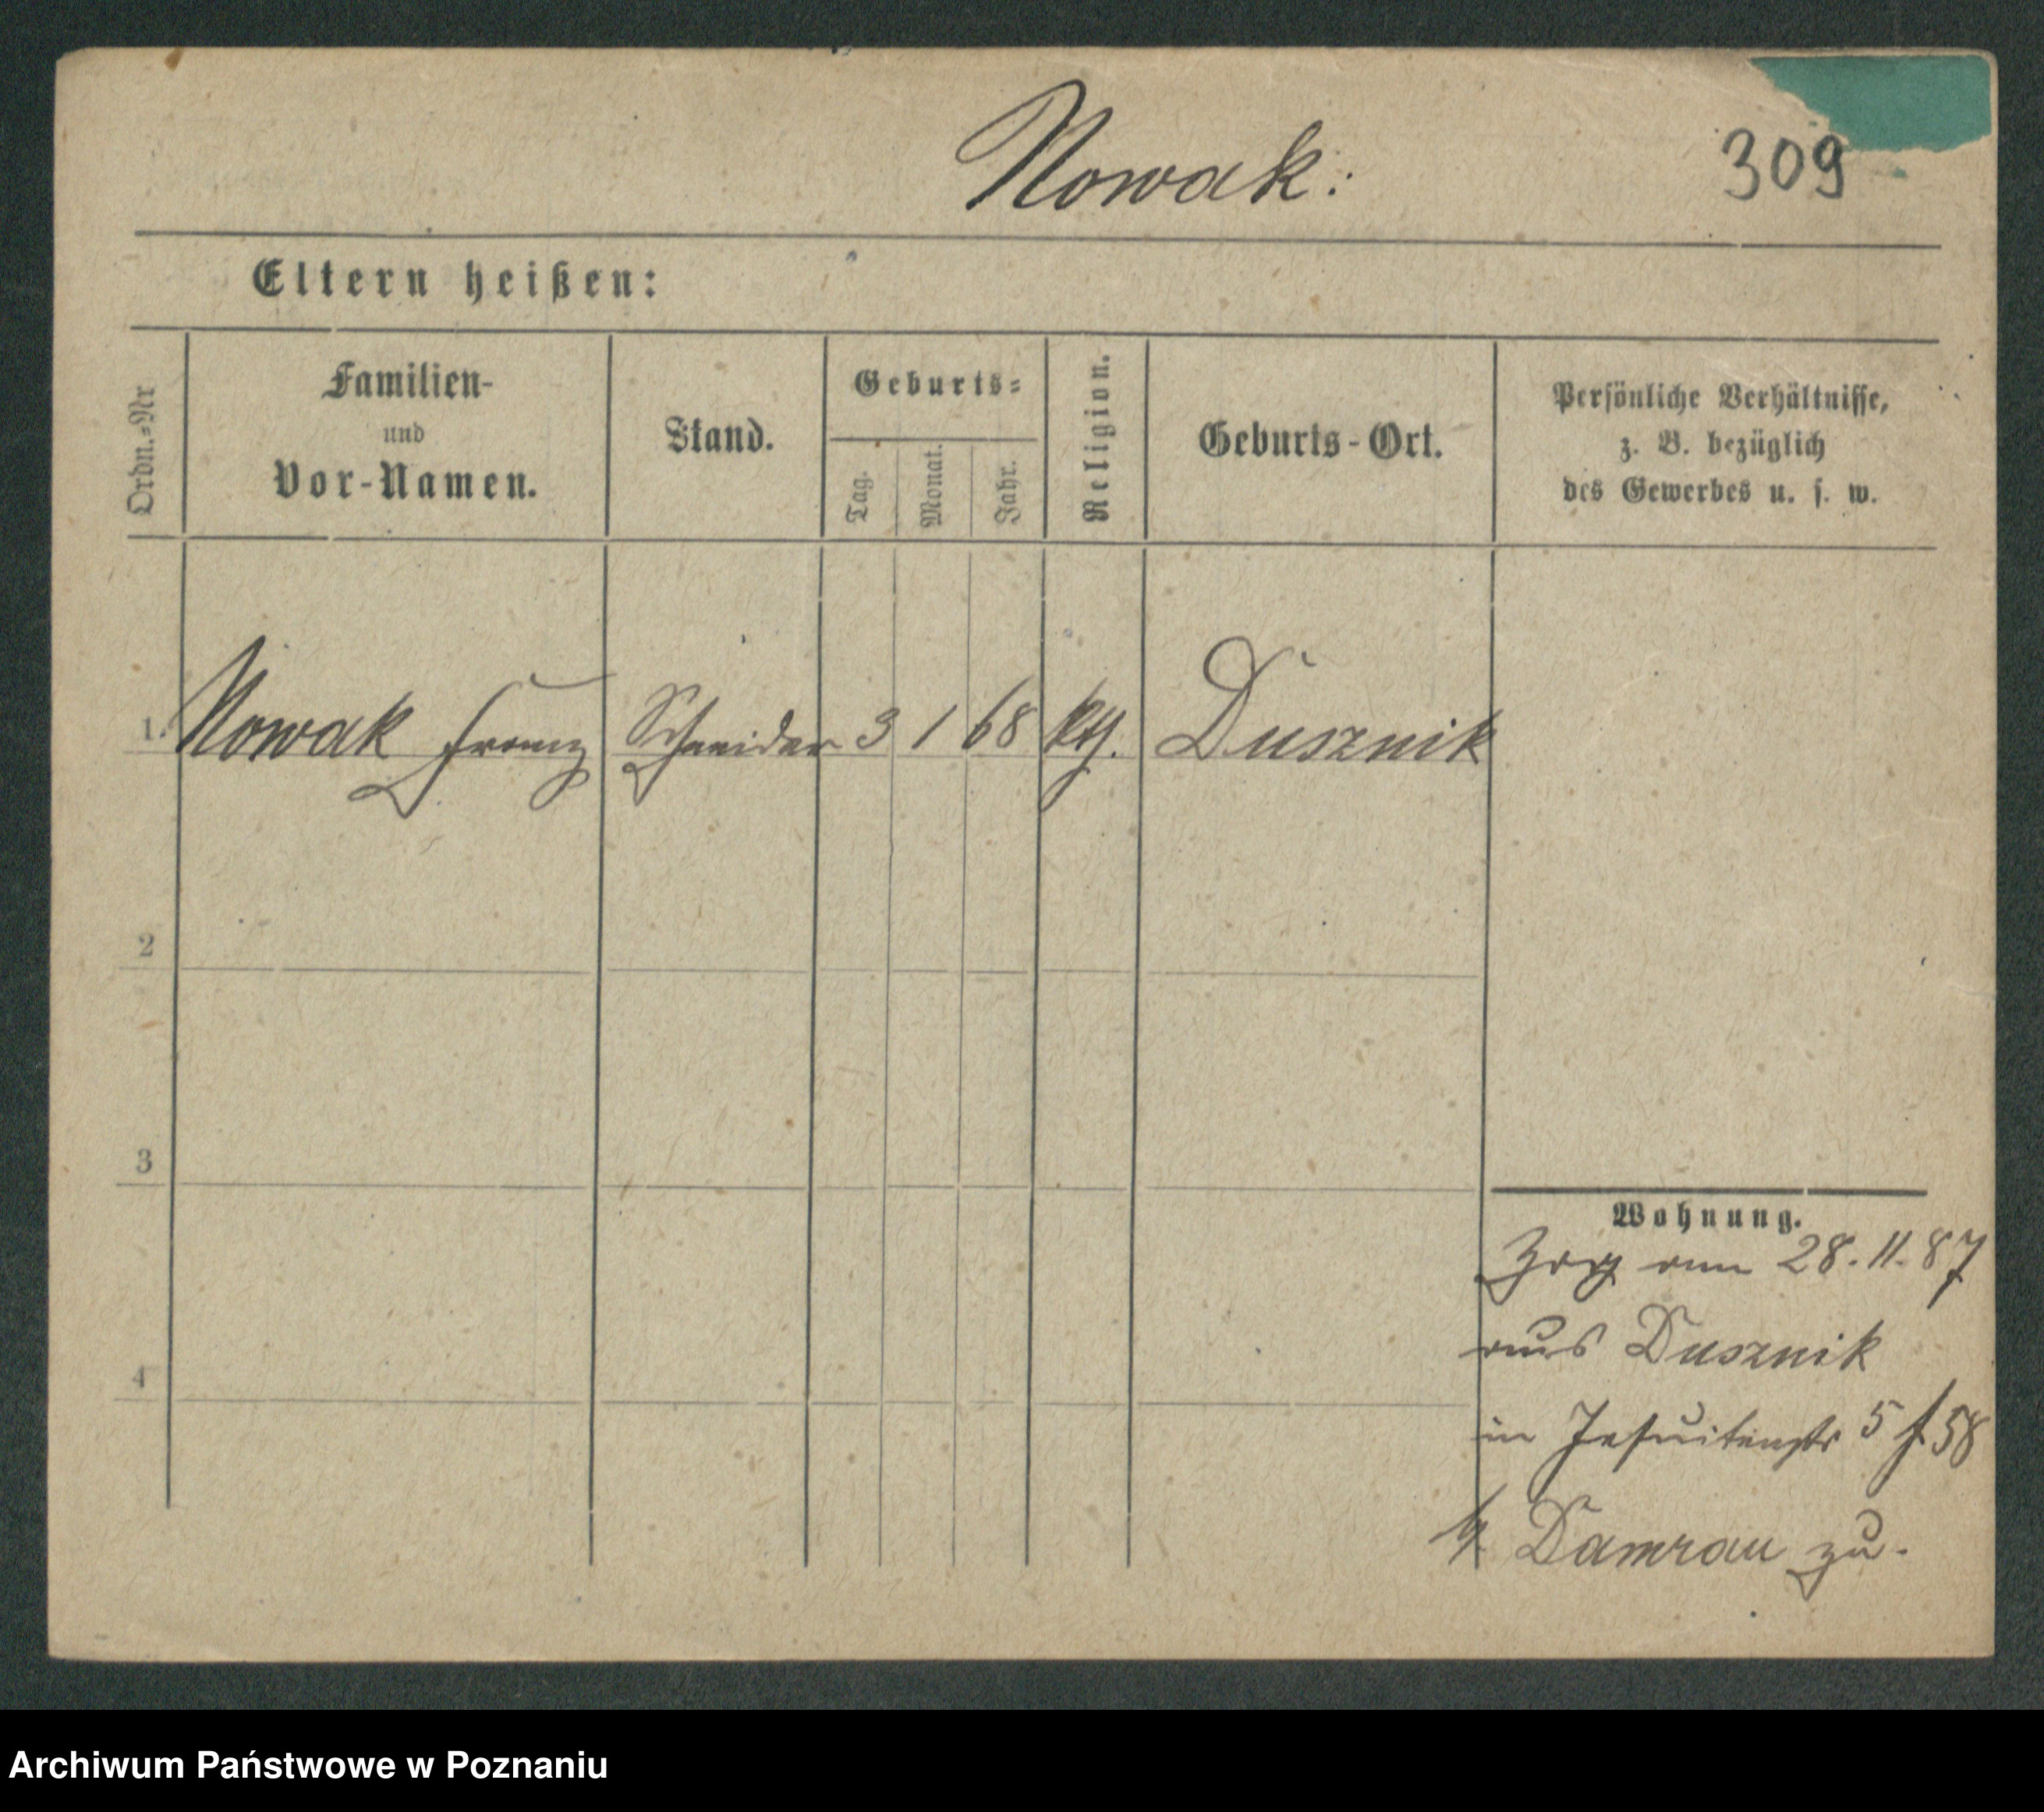 Nowak:
309
Eltern heißen:
Ordn.=Nr
Familien-
und
Vor-Namen.
Stand.
Geburts=
Tag.
Monat.
Jahr.
Religion.
Geburts-Ort.
Persönliche Verhältnisse,
z. B. bezüglich
des Gewerbes u. s. w.
1. Nowak Franz Schneider 3 1 68 kth. Dusznik
2
3
4
Wohnung.
Zog am 28.11.87
aus Dusznik
in Jesuitenstr 5 58
b/ Damrau zu.
Archiwum Państwowe w Poznaniu